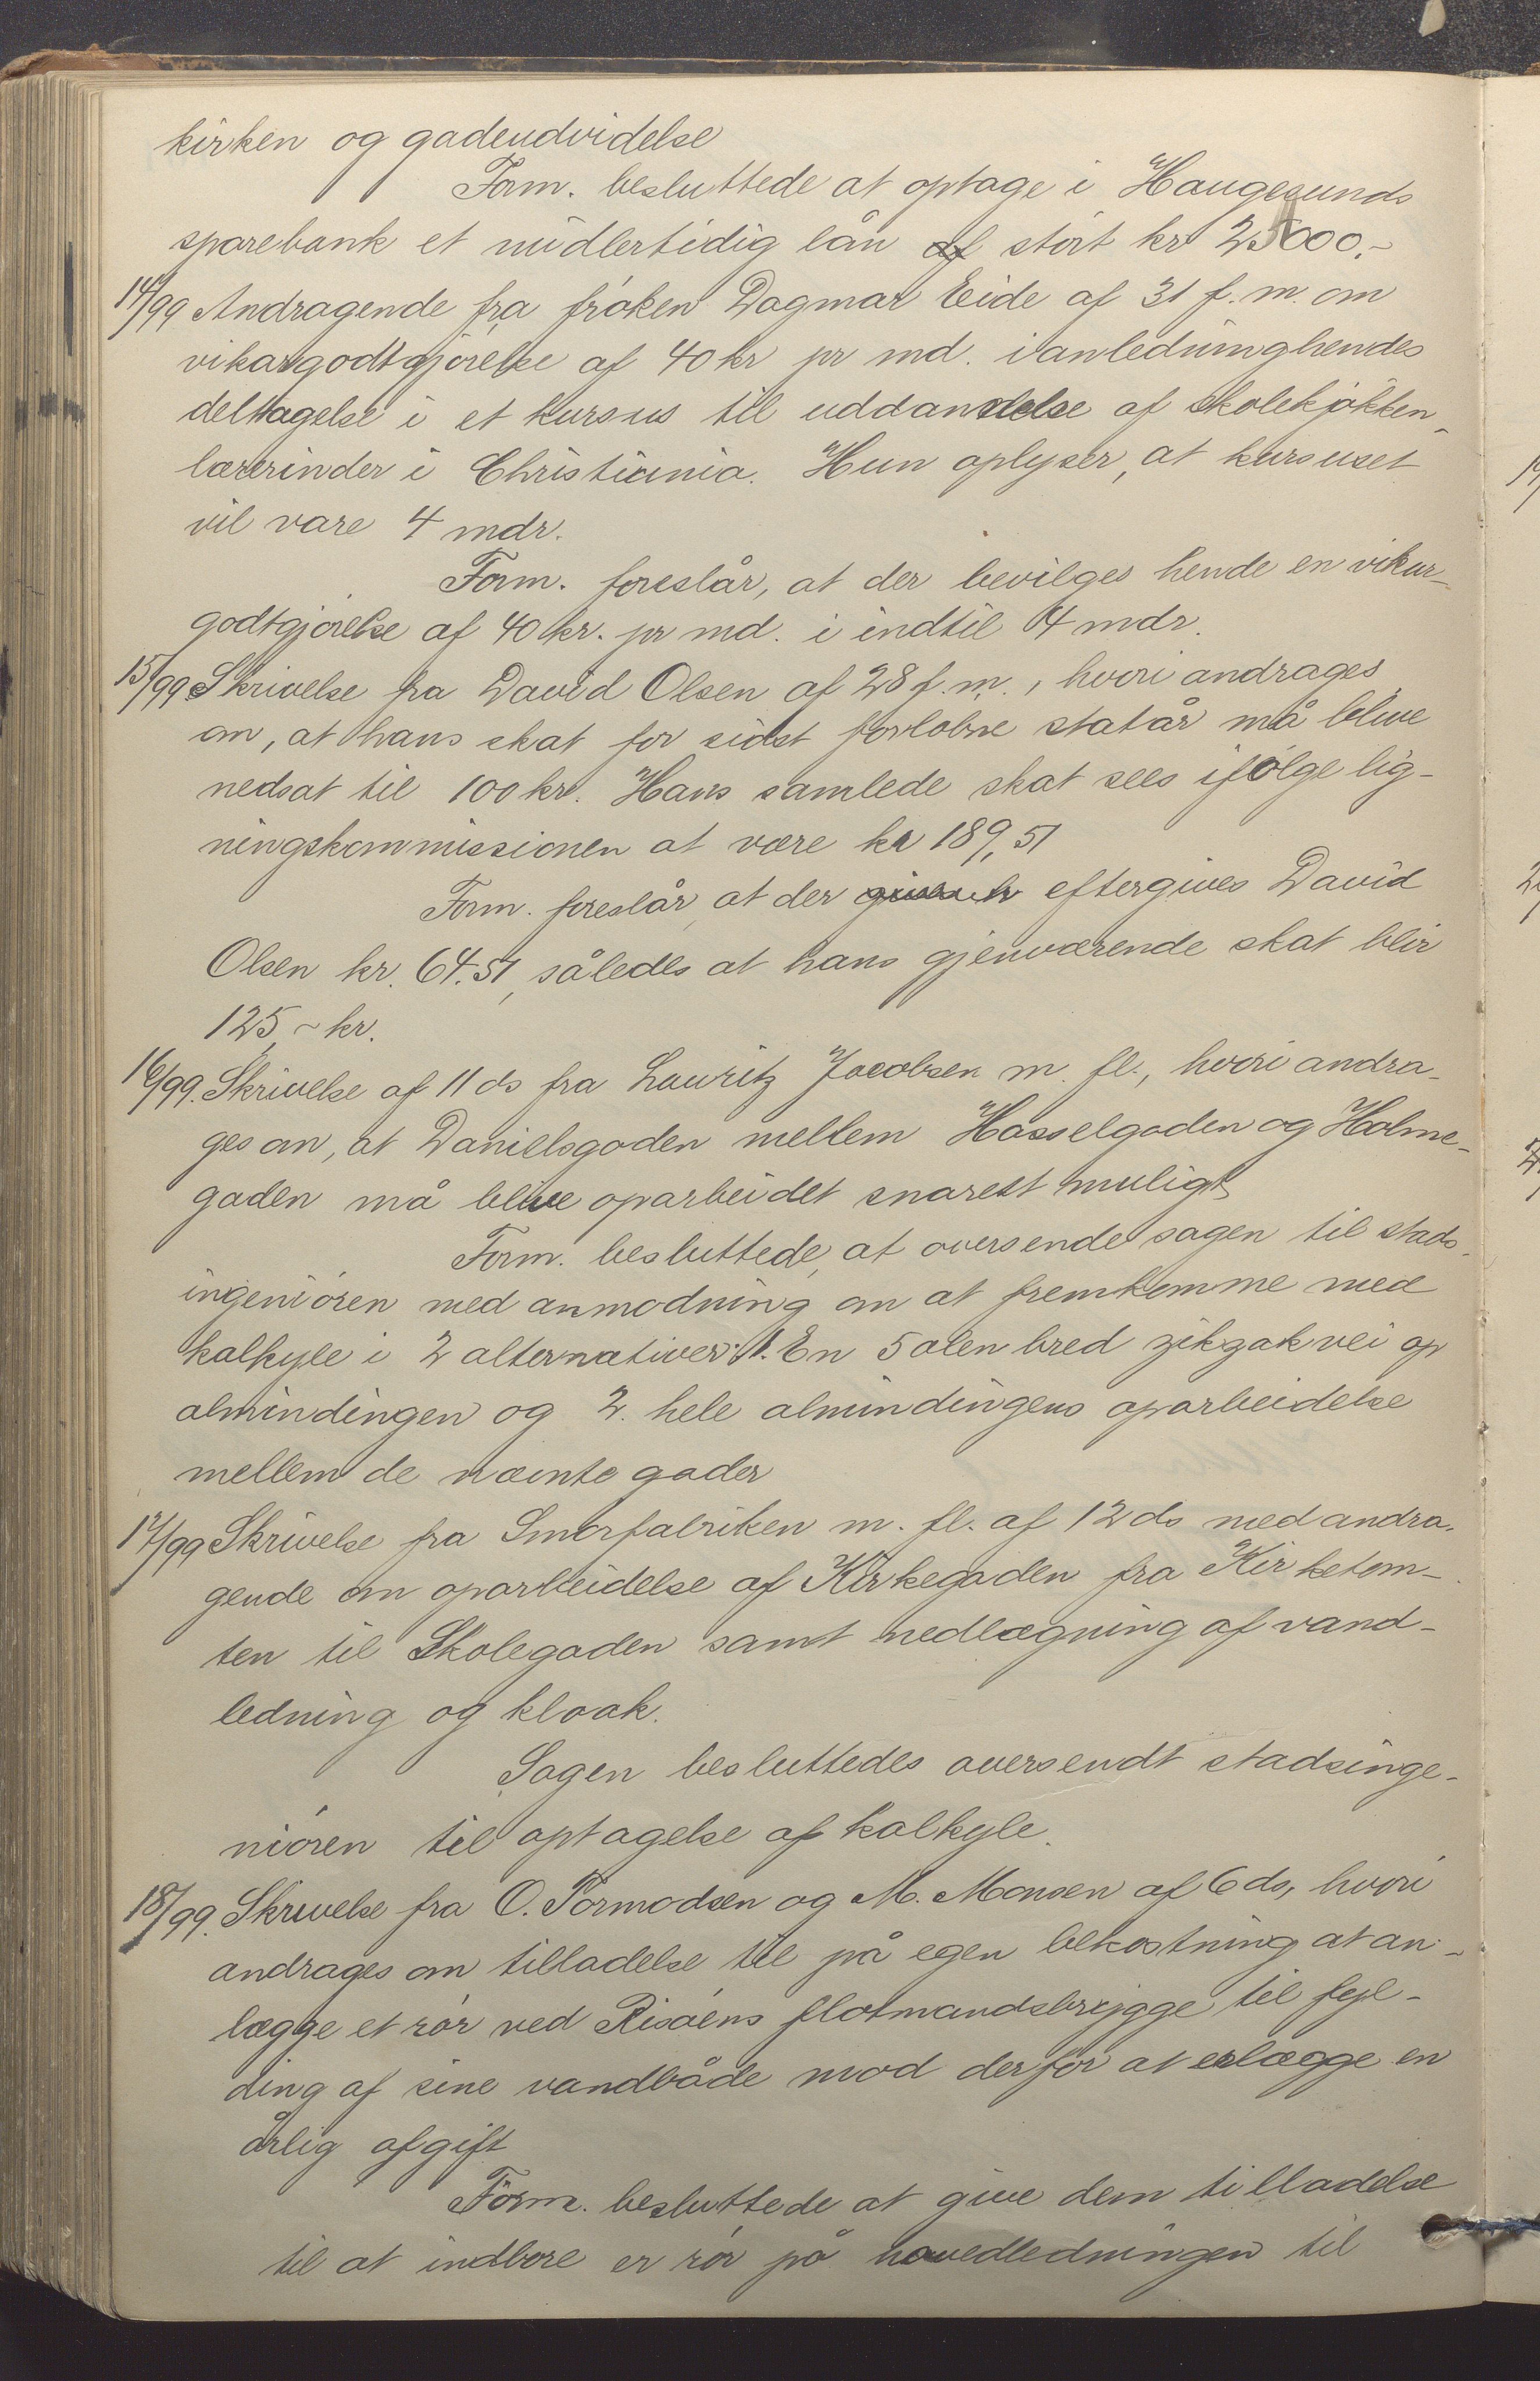 kirken og gadeudvidelse
Form. besluttede at optage i Haugesunds
sparebank et midlertidig lån af stort kr 25000.-
14/99 Andragende fra frøken Dagmar Eide af 31 f. m. om
vikargodtgjørelse af 40 kr pr md. i anledning hendes
deltagelse i et kursus til uddannelse af skolekjøkken-
lærerinder i Christiania. Hun oplyser, at kursuset
vil vare 4 mdr.
Form. foreslår, at der bevilges hende en vikar-
godtgjørelse af 40 kr. pr md. i indtil 4 mdr.
15/99 Skrivelse fra David Olsen af 28 f. m., hvori andrages
om, at hans skat for sidst forløbne skatår må blive
nedsat til 100 kr. Hans samlede skat sees ifølge lig-
ningskommissionen at være kr 189,51
Form. foreslår, at der eftergives David
Olsen kr. 64.51, således at hans gjenværende skat blir
125 ~ kr.
16/99. Skrivelse af 11 ds fra Lauritz Jacobsen m. fl., hvori andra-
ges om, at Danielsgaden mellem Hasselgaden og Holme-
gaden må blive oparbeidet snarest muligt
Form. besluttede, at oversende sagen til stads-
ingeniøren med anmodning om at fremkomme med
kalkyle i 2 alternativer: 1. En 5 alen bred zikzak vei op
almindingen og 2. hele almindingens oparbeidelse
mellem de nævnte gader
17/99 Skrivelse fra Smørfabriken m. fl. af 12 ds med andra-
gende om oparbeidelse af Kirkegaden fra Kirketom-
ten til Skolegaden samt nedlægning af vand-
ledning og kloak.
Sagen besluttedes oversendt stadsinge-
niøren til optagelse af kalkyle.
18/99. Skrivelse fra O. Tormodsen og M. Monsen af 6 ds, hvori
andrages om tilladelse til på egen bekostning at an-
lægge et rør ved Risøens flotmandsbrygge til fyl-
ding af sine vandbåde mod derfor at erlægge en
årlig afgift
Form. besluttede at give dem tilladelse
til at indbore er rør på hovedledningen til